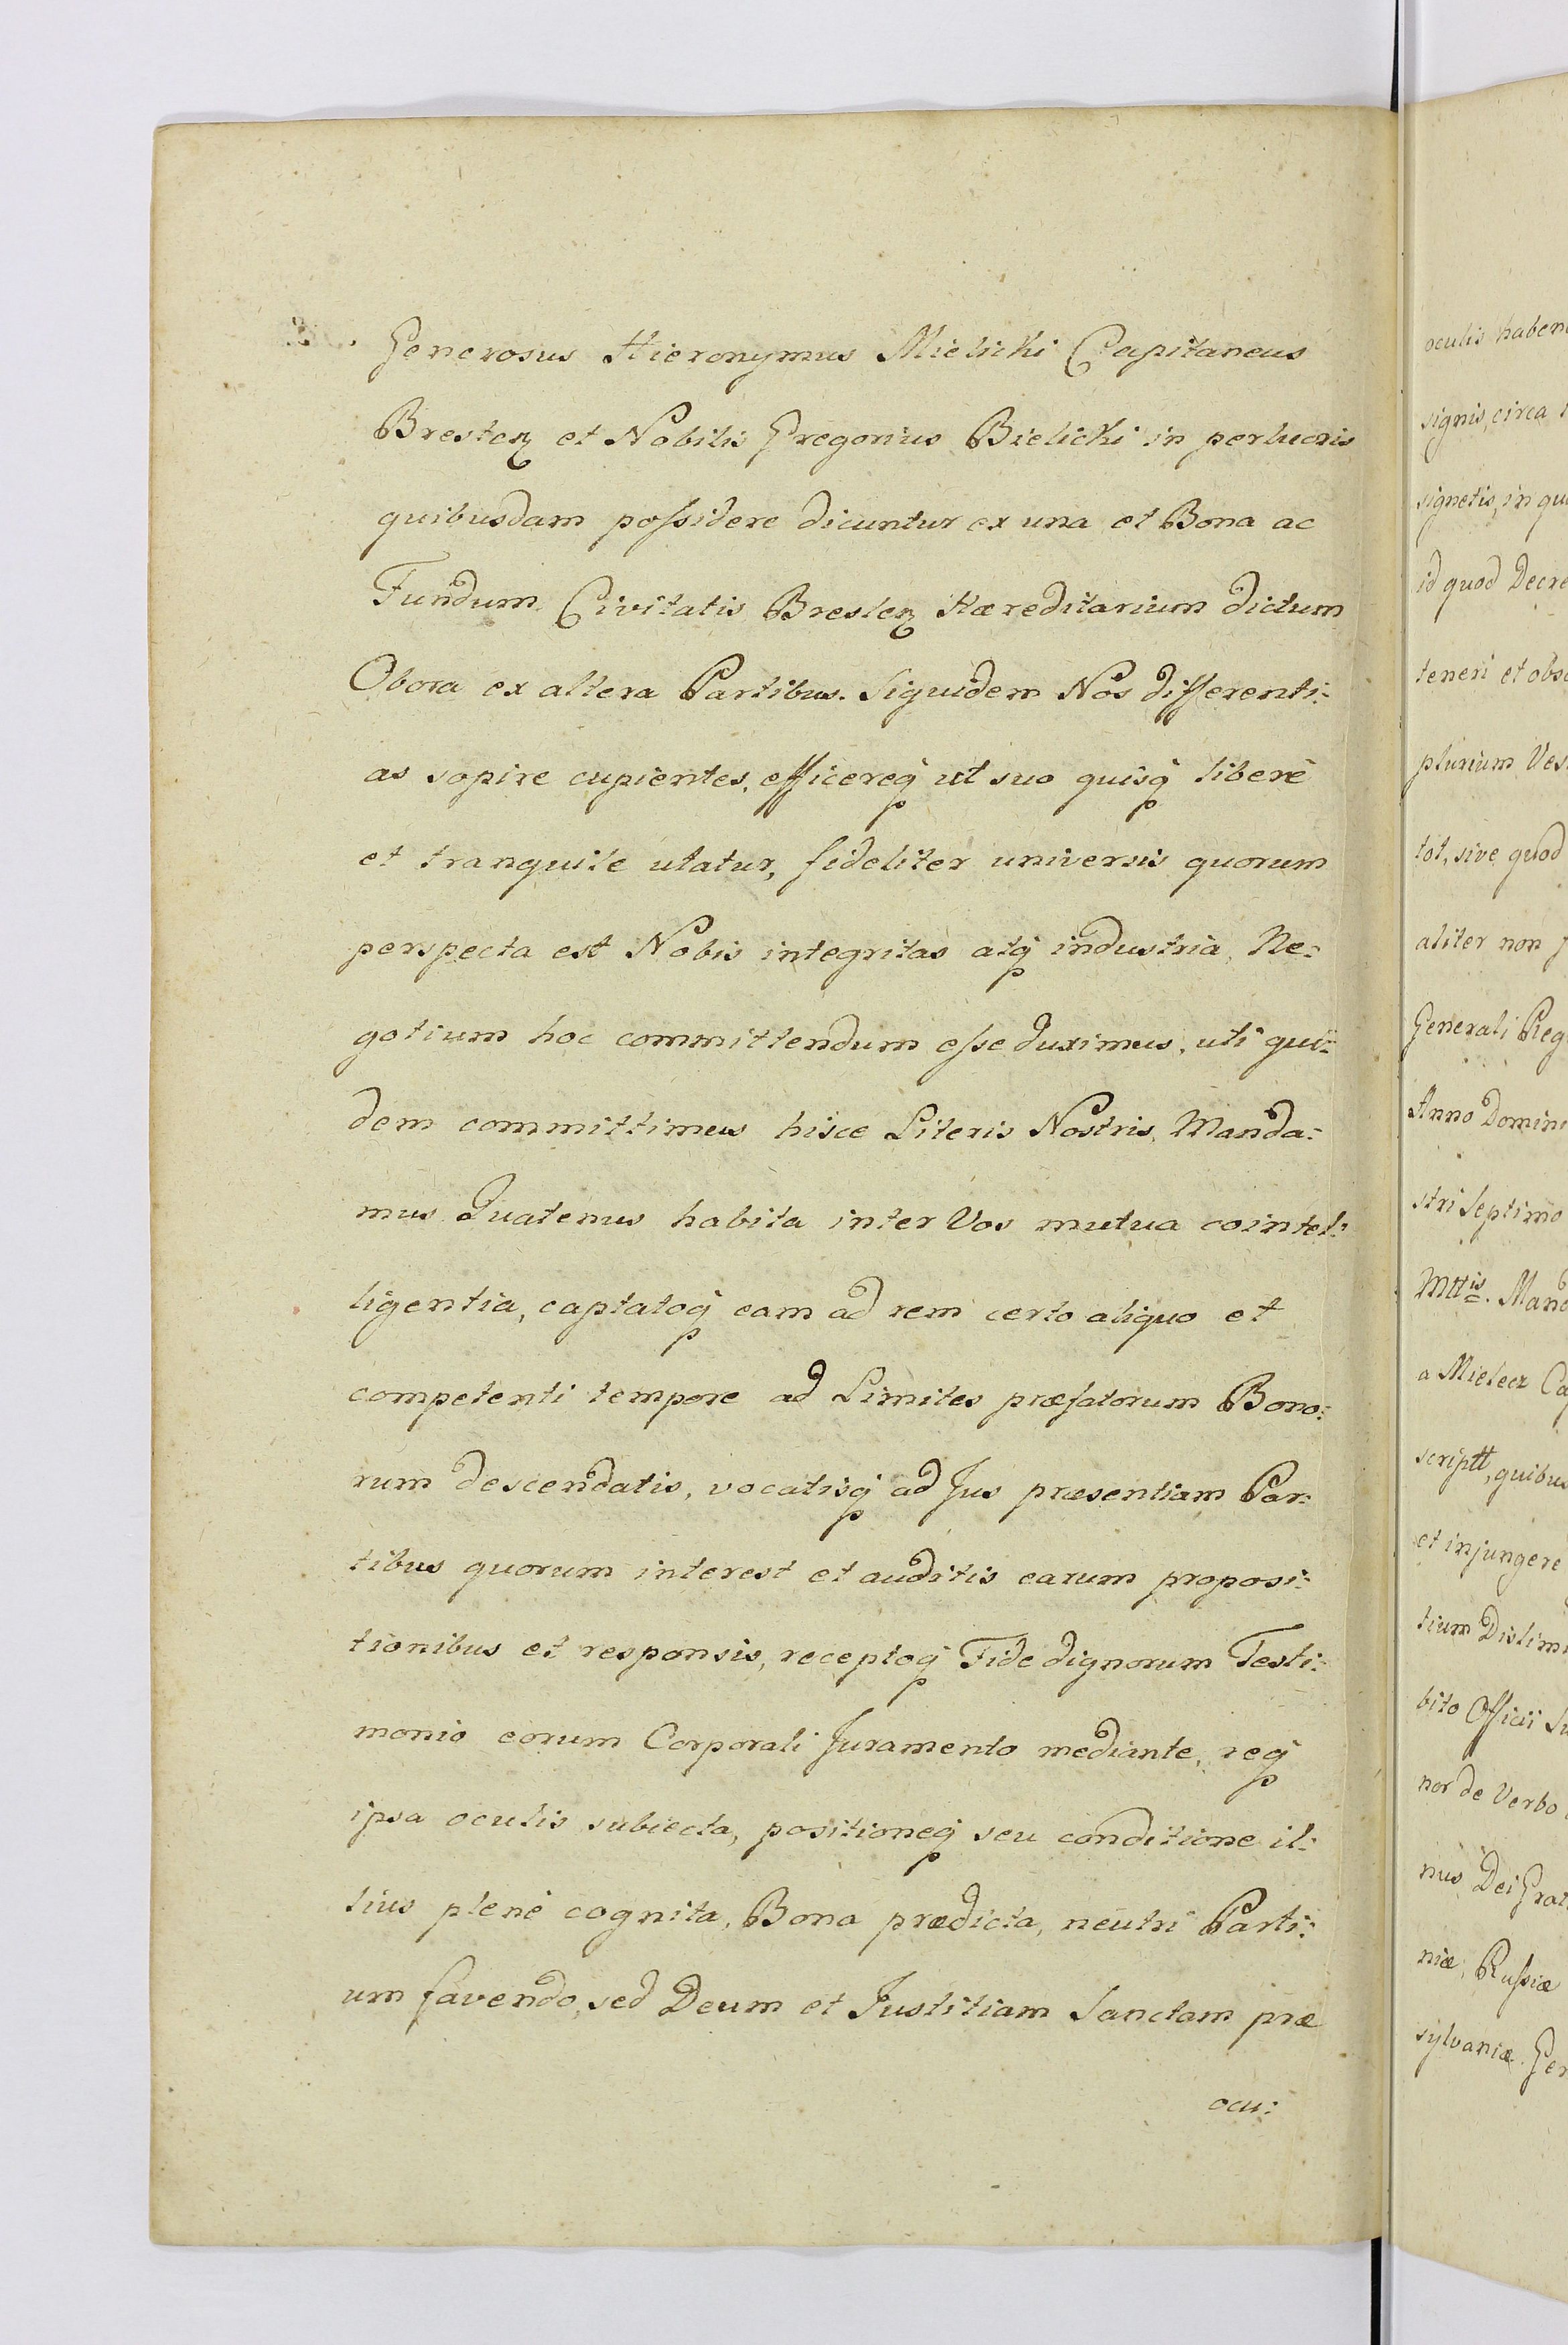 Generosus Hieronymus Mielicki Capitaneus
Bresten et Nobilis Gregorius Bielicki in perlucris
quibusdam possidere dicuntur ex una et Bona ac
Fundum Civitatis Bresten Hæreditarium dictum
Obora ex altera Partibus. Siquidem Nos differenti:
as sopire cupientes, efficereq ut suo quisq liberè
et tranquile utatur, fideliter universis quorum
perspecta est Nobis integritas atq industria, Ne:
gotium hoc committendum esse duximus, uti qui:
dem committimus hisce Literis Nostris, Manda:
mus Quatenus habita inter Vos mutua cointel:
ligentia, captatoq eam ad rem certo aliquo et
competenti tempore ad Limites præfatorum Bono:
rum descendatis, vocatisq ad Jus præsentiam Par:
tibus quorum interest et auditis earum proposi:
tionibus et responsis, receptoq Fide dignorum Testi:
monio eorum Corporali Juramento mediante, req
ipsa oculis subiecta, positioneq seu conditione il:
lius plenè cognita, Bona prædicta, neutri Parti:
um favendo, sed Deum et Justitiam Sanctam præ
ocu:
oculis haben
signis, circa
signetis, in qu
id quod Decre
teneri et obs
plurium Ves
tot, sive quod
aliter non
Generali Reg
Anno Domini
stri Septimo
Mttis. Mand
a Mielecz Ca
scriptt, quibus
et injungere
tium Distim
bito Officii Su
nor de Verbo
nus Dei Grat
niæ, Russiæ
sylvaniæ. Ger